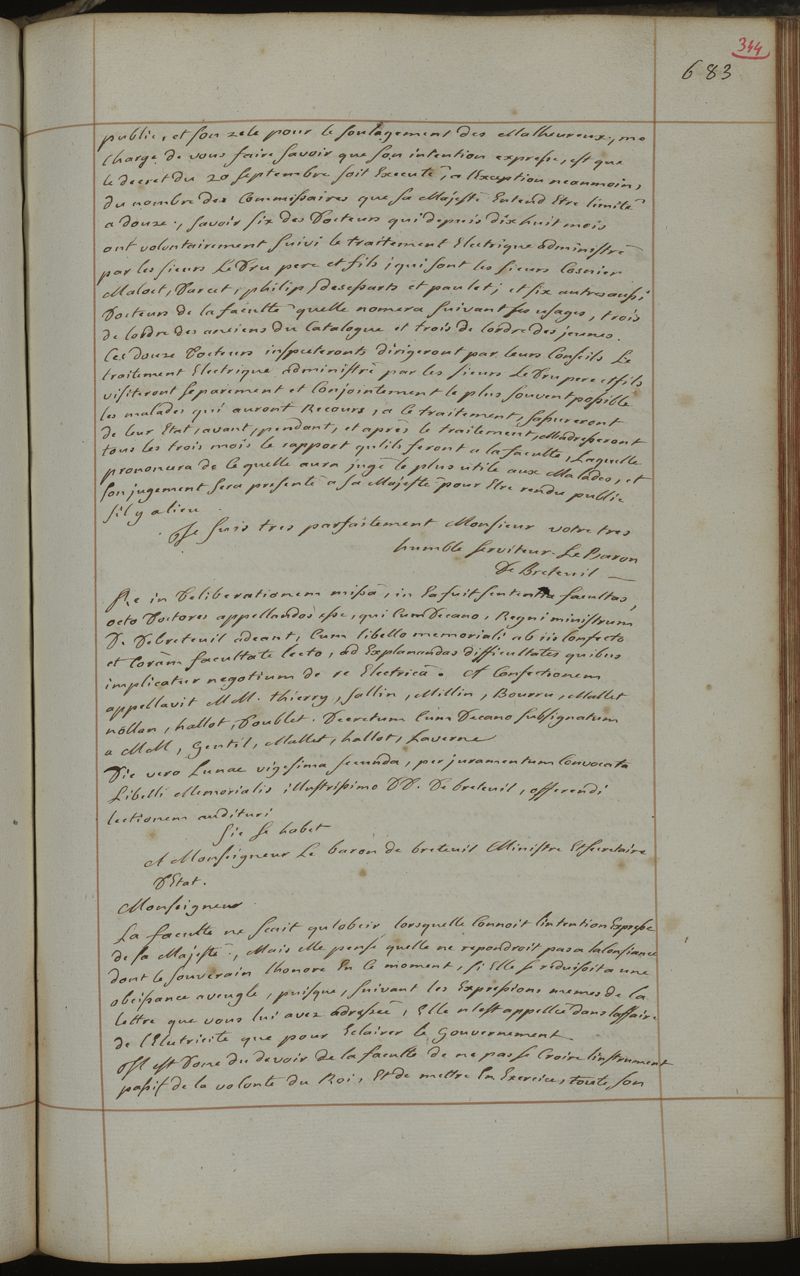 344
683
public, et son zele pour le soulagement des Malheureux, me
charge de vous faire savoir que son intention expresse, est que
le decret du 20 septembre soit Executé, a l'exception neanmoins,
du nombre des Commissaires que sa Majesté Entend Etre limité
a douze, savoir six des Docteurs qui depuis dix huit mois
ont volontairement suivi le traitement Electrique administré
par les sieurs LeDru pere et fils, qui sont les sieurs Cosnier
Maloet, Darcet, philip, Desessarts et paulet; et six autres aussi
Docteurs de la faculté quelle nomera suivant ses usages, trois
de lordre des anciens du Catalogue et trois de lordre des jeunes.
Ces douze Docteurs inspecteronts dirigeront par leurs Conseils Le
traitement Electrique administré par les sieurs LeDru pere et fils
visiteront separement et Conjointement le plus souvent possible
les malades qui auront Recours, a ce traitement, sassureront
de leur Etat, avant, pendant, et après le traitement, Madresseront
tous les trois mois le rapport qu'ils feront a la faculté, Laquelle
prononcera de ce quelle aura jugé le plus utile aux Malades, et
son jugement sera presenté a sa Majesté pour Etre rendu public
s'il y a lieu.
Je suis tres parfaitement Monsieur votre tres
humble serviteur. Le Baron
De Breteuil
Re in Deliberationem missâ, in Ea fuit sententia facultas,
octo Doctores appellandos esse, qui Cum Decano, Regni ministrum
D. Debreteuil adeant, Cum libello memoriali ab iis Confecto
et Coràm facultate lecto, ad Explanandas difficultates quibus
implicatur negotium de re Electricâ. A Confectionem
appellavit MM. thierry, sallin, Millin, Bourru, Mallet
nollan, hallot, Doublet. Decretum Cum Decano subsignatum
a MM, Gentil, Mallet, hallot, Laverne
Die vero Lunae vigesima secunda, per juramentum Convocata
Libelli Memorialis illustrissimo DD. De breteuil, offerendi
lectionem audituri
Sic se habet
A Monseigneur Le baron de breteuil Ministre Et secretaire
D'Etat.
Monseigneur
La faculté ne scait qu'obeir lorsquelle Connoit l'intention Expresse
de sa Majesté, Mais Elle pense quelle ne repondroit pas a la Confiance
dont le souverain lhonore En ce moment, si Elle se réduisoit a une
obeissance aveugle, puisque, suivant les Expressions memes de la
lettre que vous lui avez adressée, Elle n'est appellée dans laffaire
de l'Electricité que pour Eclairer le Gouvernement
Il est Donc du devoir de la faculté de ne pas se Croire linstrument
passif de la volonté du Roi, Et de mettre En Exercices toute son